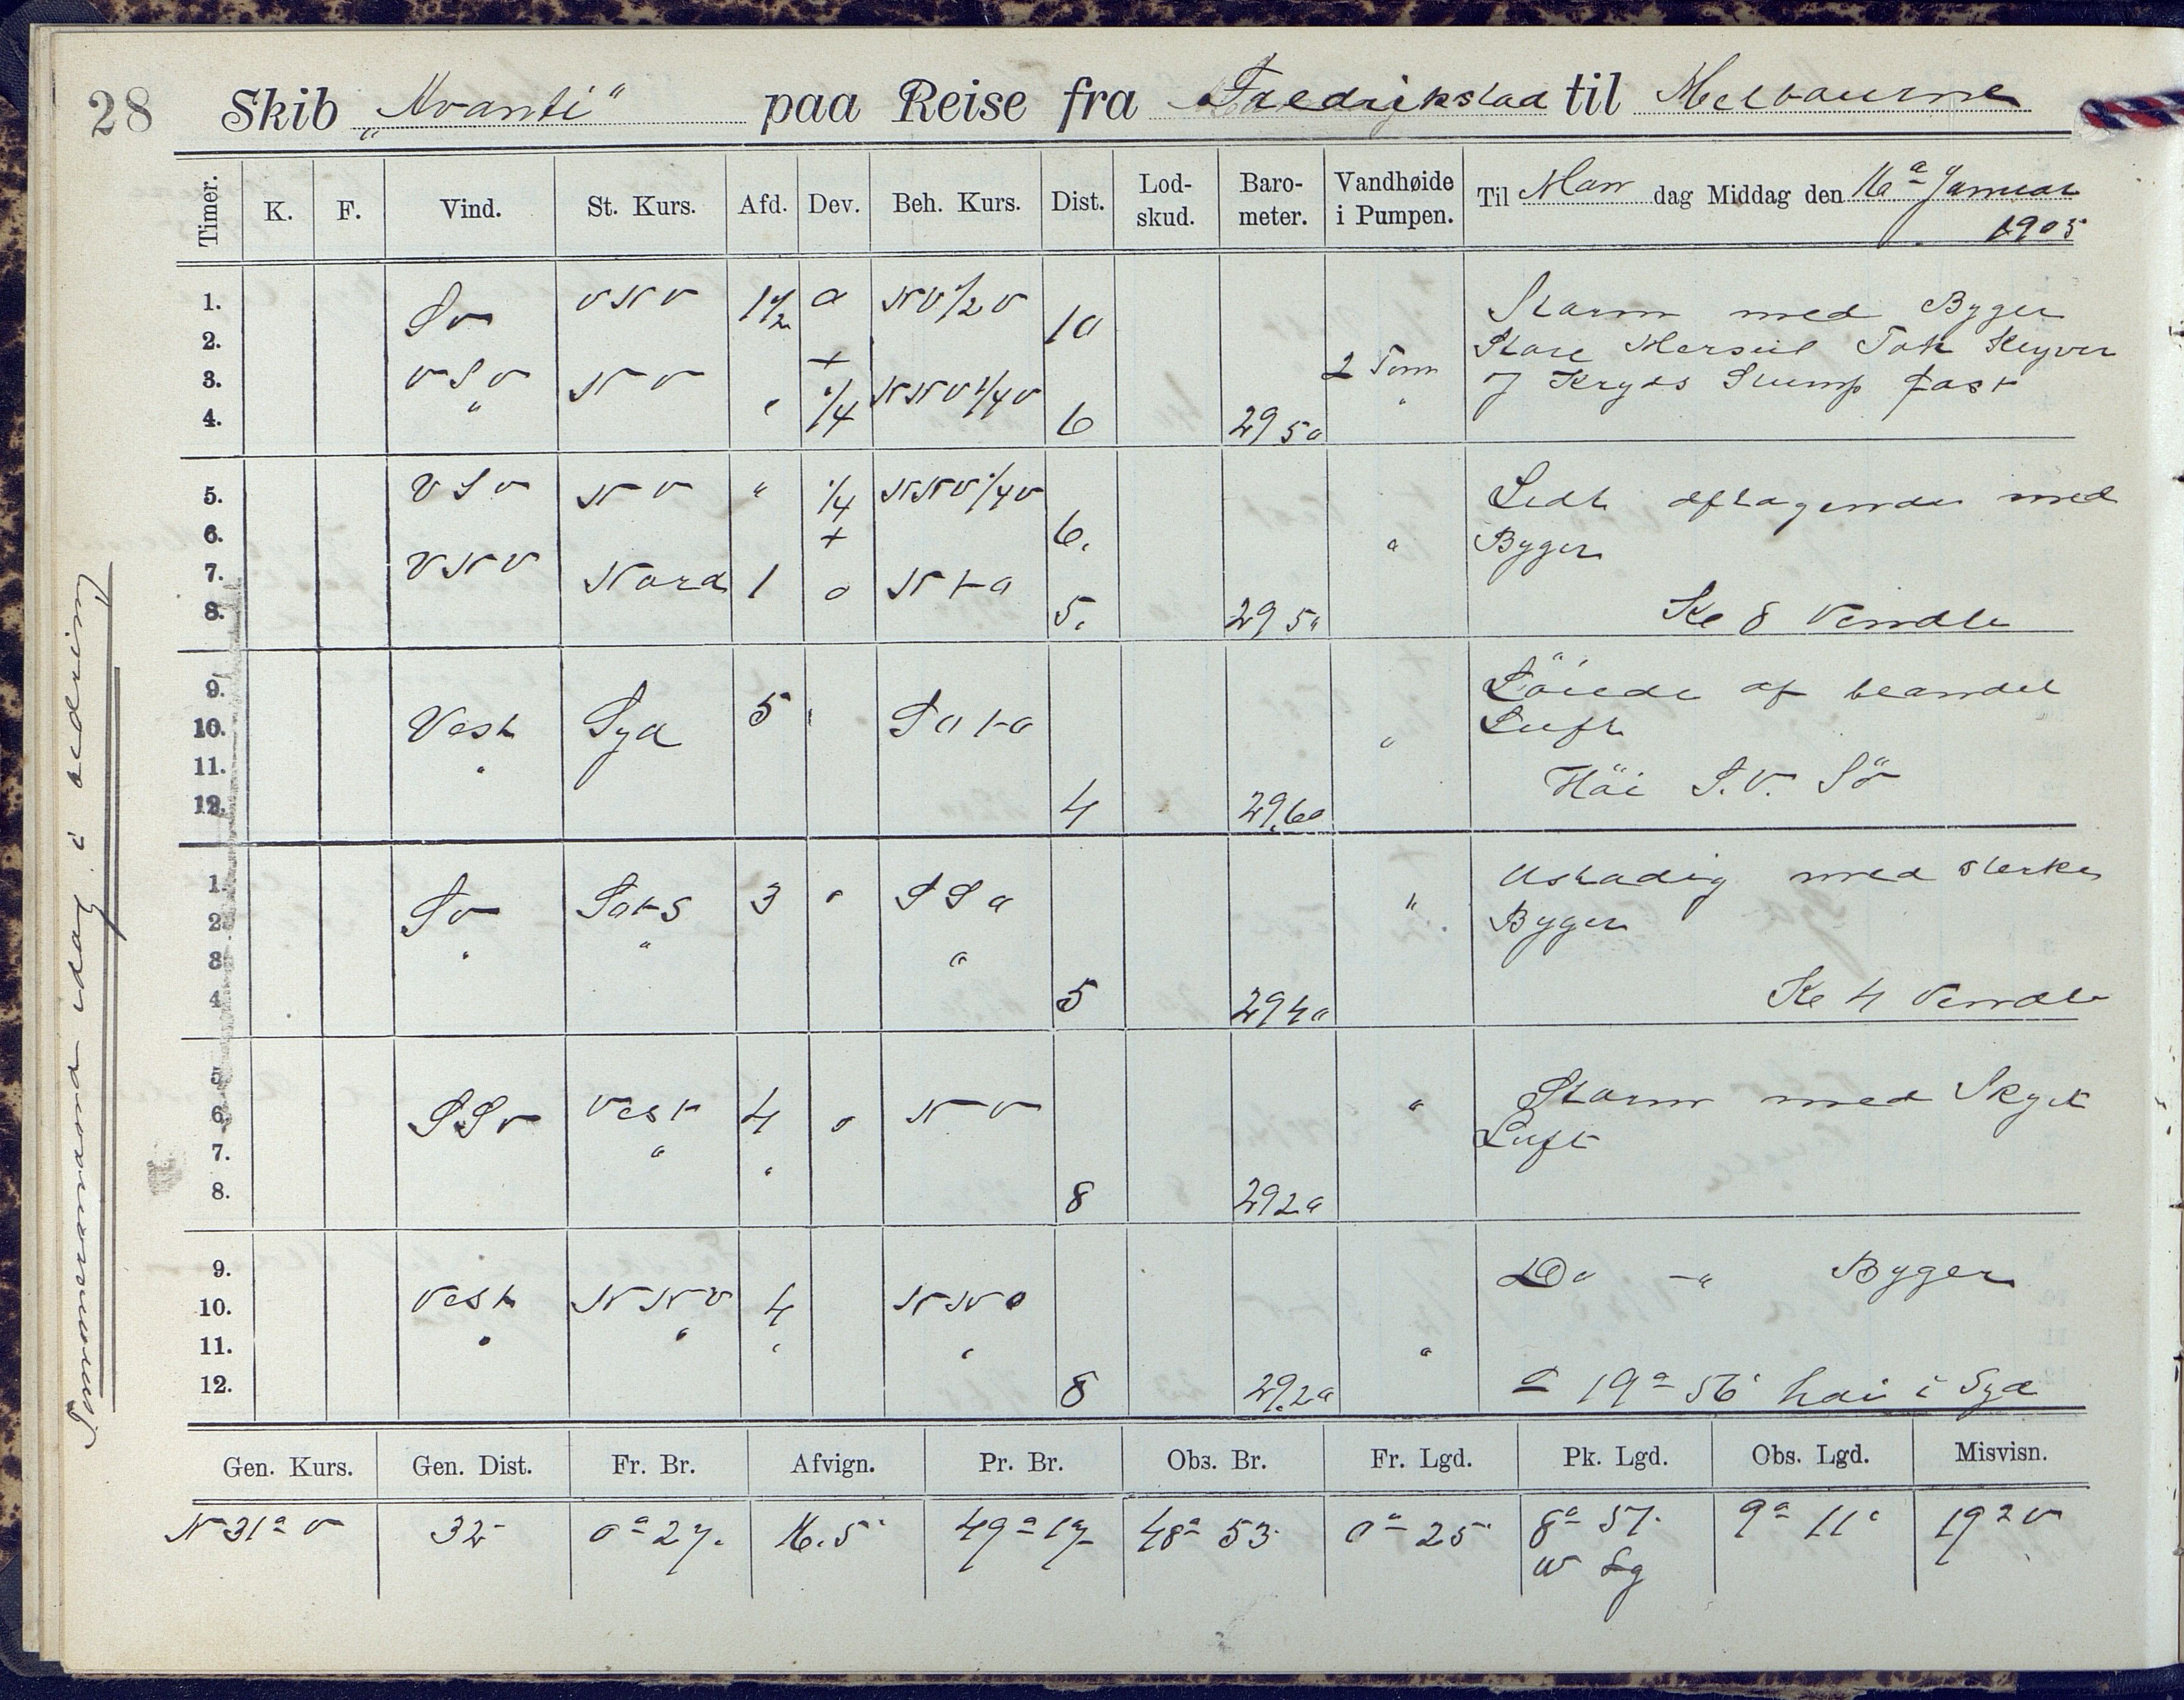 28 Skib „Avanti" paa Reise fra Fredrikstad til Melbourne
Timer. K. F. Vind. St. Kurs. Afd. Dev. Beh. Kurs. Dist. Lod-skud. Baro-meter. Vandhøide i Pumpen. Til Man dag Middag den 16de Januar
1905
1. SV VNV 1 1/2 0 NV 1/2 V 10 Storm med Byger
2. Store Merseil Tok Klyver
3. VSV NV " + 1/4 NNV 1/4 V 2 Tom 7 Kryds Stump fast
4. " 6 29 50 "
5. VSV NV " 1/4 NNV 1/4 V Lidt aftagende med
6. + 6. " Byger
7. VNV Nord 1 0 N t O
8. 5. 29 50 Kl 8 Vendte
9. Løiede af blandet
10. Vest Syd 5 " SO t O " Luft
11. " Høi S.V. Sø
12. 4 29.60
1. Ustadig med sterke
2. SV SOtS 3 0 SSO " Byger
3. " " "
4. 5 29 40 Kl 4 Vendte
5. Storm med Skyet
6. SSV Vest 4 0 NV " Luft
7. " "
8. 8 29 20
9. Do - " Byger
10. Vest NNV 4 NNO
11. " " " " "
12. 8 29.20 19° 56' høi i Syd
Gen. Kurs. Gen. Dist. Fr. Br. Afvign. Pr. Br. Obs. Br. Fr. Lgd. Pk. Lgd. Obs. Lgd. Misvisn.
N 31° V 32 0° 27' 16.5 49° 17 48° 53' 0° 25' 8° 51' 9° 11' 19° V
W Lg
Tømmermand idag i bedring